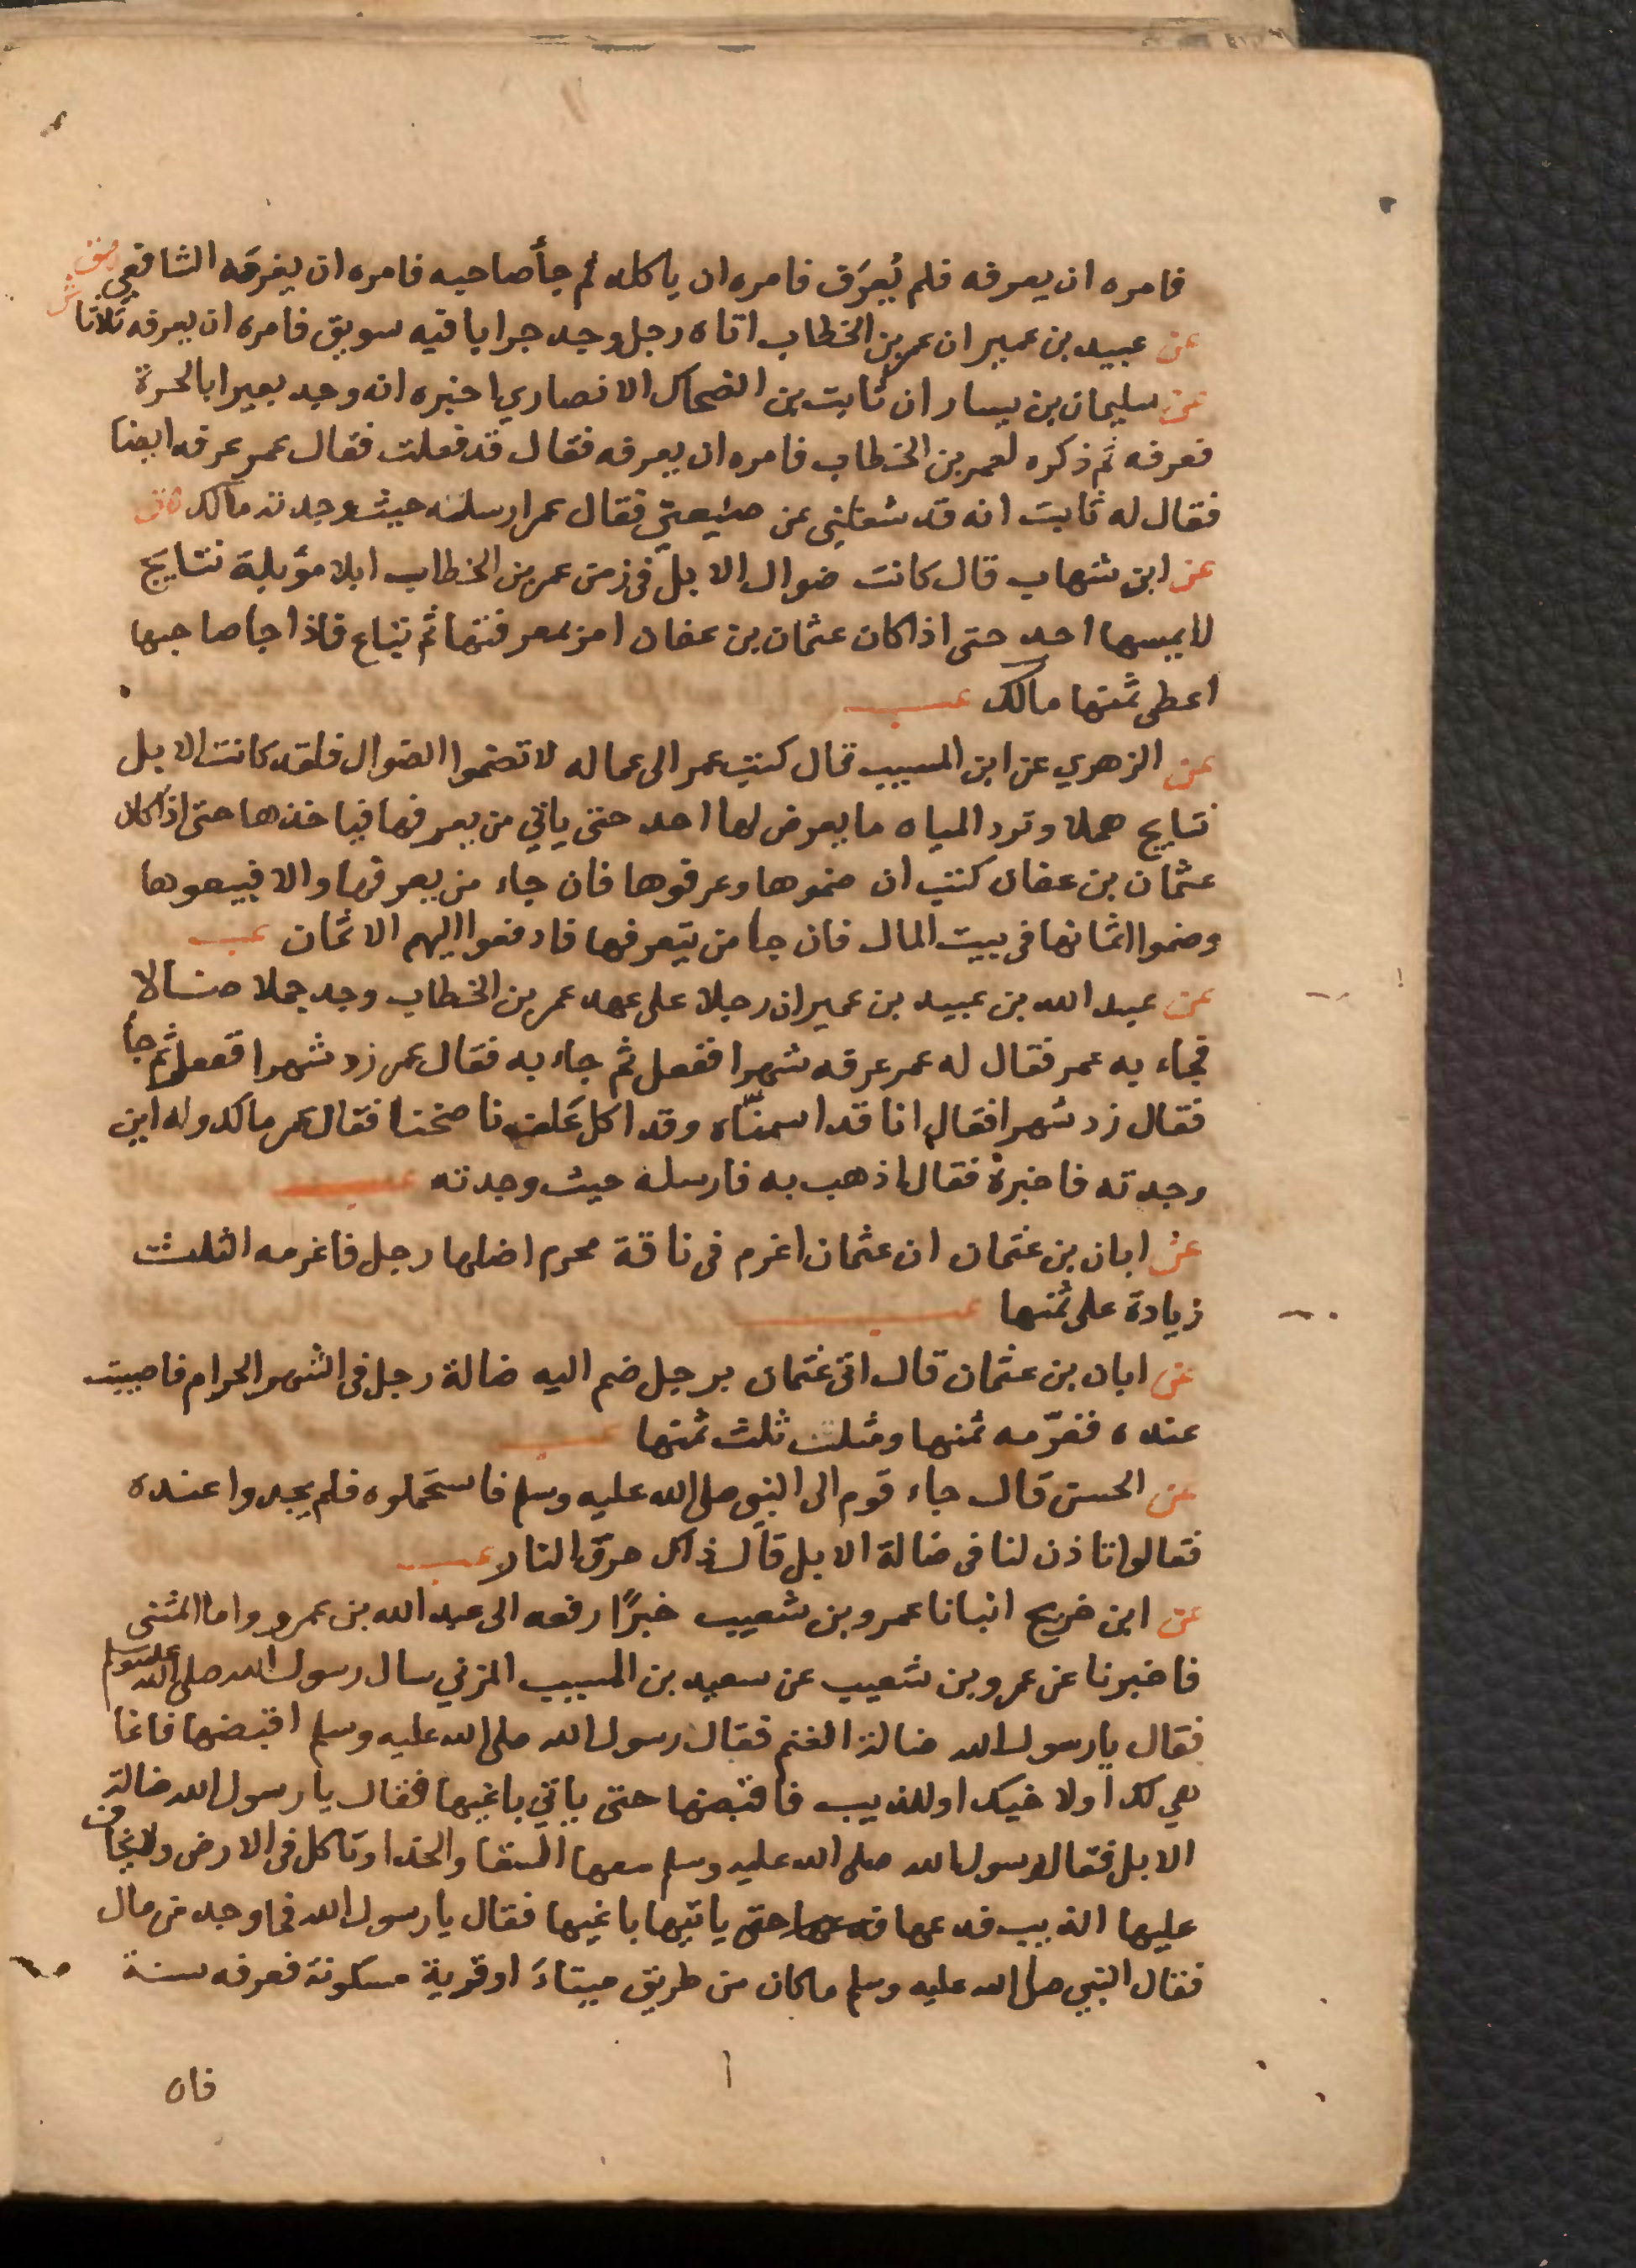 فامره ان يعرفه فلم يُعرَف فامره ان ياكله ثم جأ صاحبه فامره ان يغرمه الشافعي ق
عن عبيد بن عمير ان عمر بن الخطاب اتاه رجل وجد جرابا فيه سويق فامره ان يعرفه ثلاثا ش
عن سليمان بن يسار ان ثابت بن الضحاك الانصاري اخبره انه وجد بعيرا بالحرة
فعرفه ثم ذكره لعمر بن الخطاب فامره ان يعرفه فقال قد فعلت فقال عمر عرفه ايضا
فقال له ثابت انه قد شغلني عن ضيعتي فقال عمر ارسله حيث وجدته مالك ق
عن ابن شهاب قال كانت ضوال الابل في زمن عمر بن الخطاب ابلا مؤبلة نتايج
لا يمسها احد حتى اذا كان عثمان بن عفان امر بمعرفتها ثم تباع فاذا جا صاحبها
اعطى ثمنها مالك عب
عن الزهري عن ابن المسيب قال كتب عمر الى عماله لا تضموا الضوال فلقد كانت الابل
نتايج هملا وترد المياه ما يعرض لها احد حتى ياتي من يعرفها فياخذها حتى اذا كان
عثمان بن عفان كتب ان ضموها وعرفوها فان جاء من يعرفها والا فبيعوها
وضموا اثمانها في بيت المال فان جا من يتعرفها فادفعوا اليهم الاثمان عب
عن عبد الله بن عبيد بن عمير ان رجلا على عهد عمر بن الخطاب وجد جملا ضالا
فجاء به عمر فقال له عمر عرفه شهرا ففعل ثم جاء به فقال عمر زد شهرا ففعل ثم جأ
فقال زد شهرا فقال انا قد اسمنّاه وقد اكل عَلَف ناضحنا فقال عمر مالك وله اين
وجدته فاخبره فقال اذهب به فارسله حيث وجدته عب
عن ابان بن عثمان ان عثمان اغرم في ناقة محرم اضلها رجل فاغرمه الثلث
زيادة على ثمنها عب
عن ابان بن عثمان قال اتى عثمان برجل ضم اليه ضالة رجل في الشهر الحرام فاصيبت
عنده فغرّمه ثمنها ومثلت ثلث ثمنها عب
عن الحسن قال جاء قوم الى النبي صلى الله عليه وسلم فاستحملوه فلم يجدوا عنده
فقالوا تاذن لنا في ضالة الابل قال ذاك حرق النار عب
عن ابن خريج انبانا عمرو بن شعيب خبرًا رفعه الى عبد الله بن عمرو واما المثنى
فاخبرنا عن عمرو بن شعيب عن سعيد بن المسيب المزني سال رسول الله صلى الله عليه وسلم
فقال يارسول الله ضالة الغنم فقال رسول الله صلى الله عليه وسلم اقبضها فانما
هي لك او لاخيك او للذيب فاقبضها حتى ياتي باغيها فقال يا رسول الله ضالة
الابل فقال رسول الله صلى الله عليه وسلم معها السقا والحذا وتاكل في الارض ولا يخاف
عليها الذيب فدعها فدعها حتى ياتيها باغيها فقال يا رسول الله فما وجد من مال
فقال النبي صلى الله عليه وسلم ما كان من طريق ميتاءَ او قرية مسكونة فعرفه سنة
فان